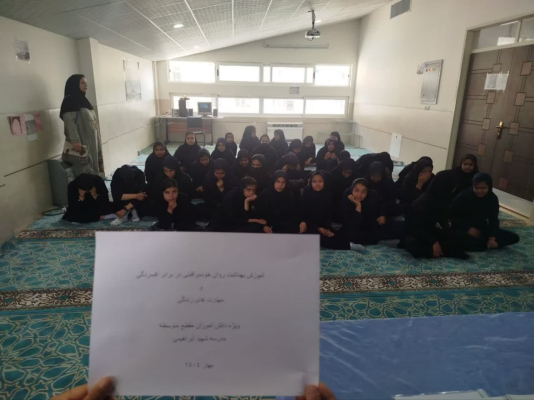 آموزش بهداشت روان خودمراقبتی در برابر افسردگی
و
مهارت های زندگی
ویژه دانش آموزان مقطع متوسطه
مدرسه شهید ابراهیمی
بهار ۱۴۰۴